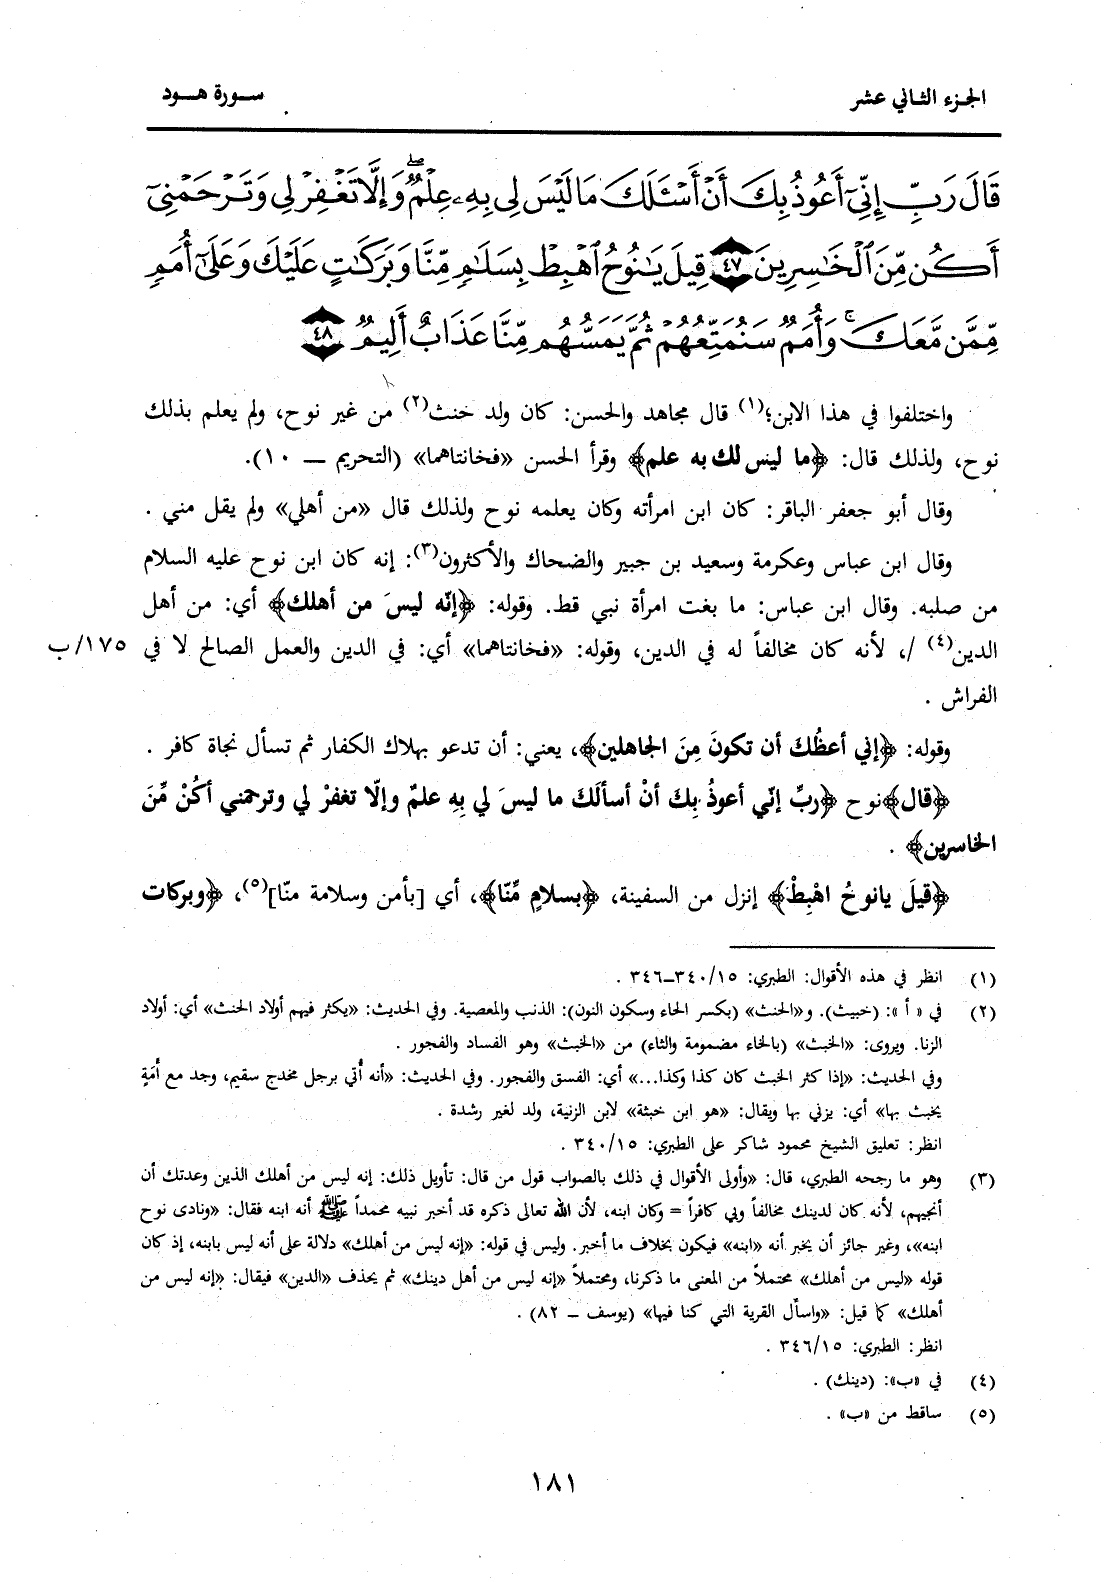 الجزء الثاني عشر
سورة هود
قَالَ رَبِّ إِنِّىٓ أَعُوذُ بِكَ أَنْ أَسْـَٔلَكَ مَا لَيْسَ لِى بِهِۦ عِلْمٌ ۖ وَإِلَّا تَغْفِرْ لِى وَتَرْحَمْنِىٓ
أَكُن مِّنَ ٱلْخَـٰسِرِينَ ٤٧ قِيلَ يَـٰنُوحُ ٱهْبِطْ بِسَلَـٰمٍ مِّنَّا وَبَرَكَـٰتٍ عَلَيْكَ وَعَلَىٰٓ أُمَمٍ
مِّمَّن مَّعَكَ ۚ وَأُمَمٌ سَنُمَتِّعُهُمْ ثُمَّ يَمَسُّهُم مِّنَّا عَذَابٌ أَلِيمٌ ٤٨
واختلفوا في هذا الابن؛(١) قال مجاهد والحسن: كان ولد خنث(٢) من غير نوح، ولم يعلم بذلك
نوح، ولذلك قال: ﴿ما ليس لك به علم﴾ وقرأ الحسن «فخانتاهما» (التحريم ــ ١٠).
وقال أبو جعفر الباقر: كان ابن امرأته وكان يعلمه نوح ولذلك قال «من أهلي» ولم يقل مني .
وقال ابن عباس وعكرمة وسعيد بن جبير والضحاك والأكثرون(٣): إنه كان ابن نوح عليه السلام
من صلبه. وقال ابن عباس: ما بغت امرأة نبي قط. وقوله: ﴿إنّه ليسَ من أهلك﴾ أي: من أهل
الدين(٤) /، لأنه كان مخالفاً له في الدين، وقوله: «فخانتاهما» أي: في الدين والعمل الصالح لا في ١٧٥/ب
الفراش .
وقوله: ﴿إني أعظُكَ أن تكونَ مِنَ الجاهلين﴾، يعني: أن تدعو بهلاك الكفار ثم تسأل نجاة كافر .
﴿قال﴾ نوح ﴿ربِّ إنّي أعوذُ بِكَ أنْ أسألَكَ ما ليسَ لي بِهِ علمٌ وإلّا تغفرْ لي وترحمني أكُنْ مِّنَ
الخاسرين﴾ .
﴿قيلَ يانوحُ اهْبِطْ﴾ إنزل من السفينة، ﴿بسلامٍ مِّنّا﴾، أي [بأمن وسلامة منّا](٥)، ﴿وبركات
(١) انظر في هذه الأقوال: الطبري: ٣٤٠/١٥ــ٣٤٦ .
(٢) في « أ »: (خبيث). و«الحنث» (بكسر الحاء وسكون النون): الذنب والمعصية. وفي الحديث: «يكثر فيهم أولاد الحنث» أي: أولاد
الزنا. ويروى: «الخبث» (بالخاء مضمومة والثاء) من «الخبث» وهو الفساد والفجور .
وفي الحديث: «إذا كثر الخبث كان كذا وكذا...» أي: الفسق والفجور. وفي الحديث: «أنه أُتي برجل مخدج سقيم، وجد مع أَمَةٍ
يخبث بها» أي: يزني بها ويقال: «هو ابن خبثة» لابن الزنية، ولد لغير رشدة .
انظر: تعليق الشيخ محمود شاكر على الطبري: ٣٤٠/١٥ .
(٣) وهو ما رجحه الطبري، قال: «وأولى الأقوال في ذلك بالصواب قول من قال: تأويل ذلك: إنه ليس من أهلك الذين وعدتك أن
أنجيهم، لأنه كان لدينك مخالفاً وبي كافراً = وكان ابنه، لأن الله تعالى ذكره قد أخبر نبيه محمداً ﷺ أنه ابنه فقال: «ونادى نوح
ابنه»، وغير جائز أن يخبر أنه «ابنه» فيكون بخلاف ما أخبر. وليس في قوله: «إنه ليس من أهلك» دلالة على أنه ليس بابنه، إذ كان
قوله «ليس من أهلك» محتملاً من المعنى ما ذكرنا، ومحتملاً «إنه ليس من أهل دينك» ثم يحذف «الدين» فيقال: «إنه ليس من
أهلك» كما قيل: «واسأل القرية التي كنا فيها» (يوسف ــ ٨٢) .
انظر: الطبري: ٣٤٦/١٥ .
(٤) في «ب»: (دينك) .
(٥) ساقط من «ب» .
١٨١